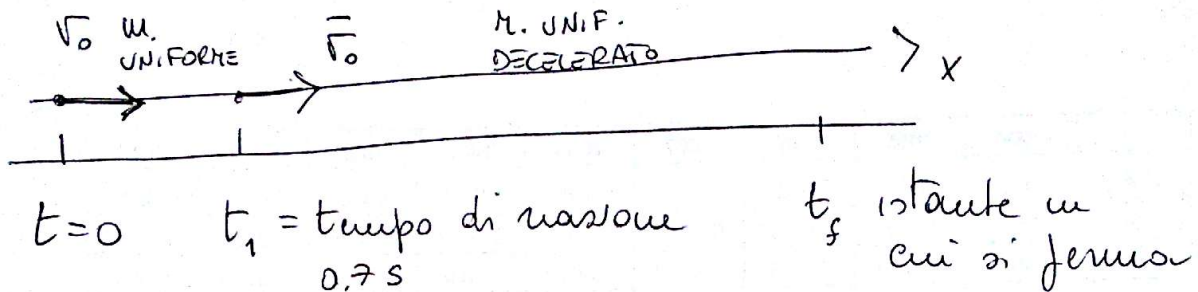 v₀ M. UNIFORME v̄₀ M. UNIF. DECELERATO
x
t=0 t₁ = tempo di reazione t_f istante in
0,7 s cui si ferma